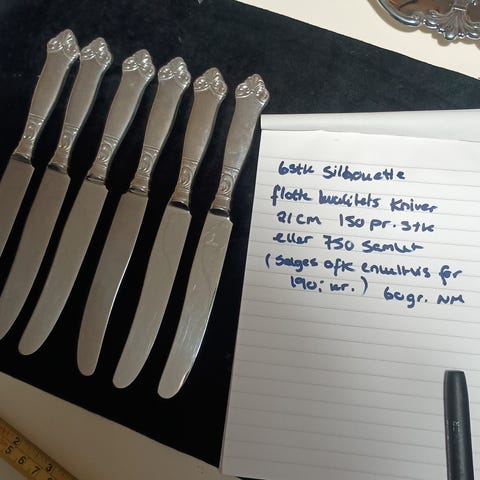 6stk Silhouette
flotte kvalitets kniver
21cm 150 pr. stk
eller 750 samlet
(Selges ofte enkeltvis for
190,- kr.) 60gr. NM
2 3
5 6 7